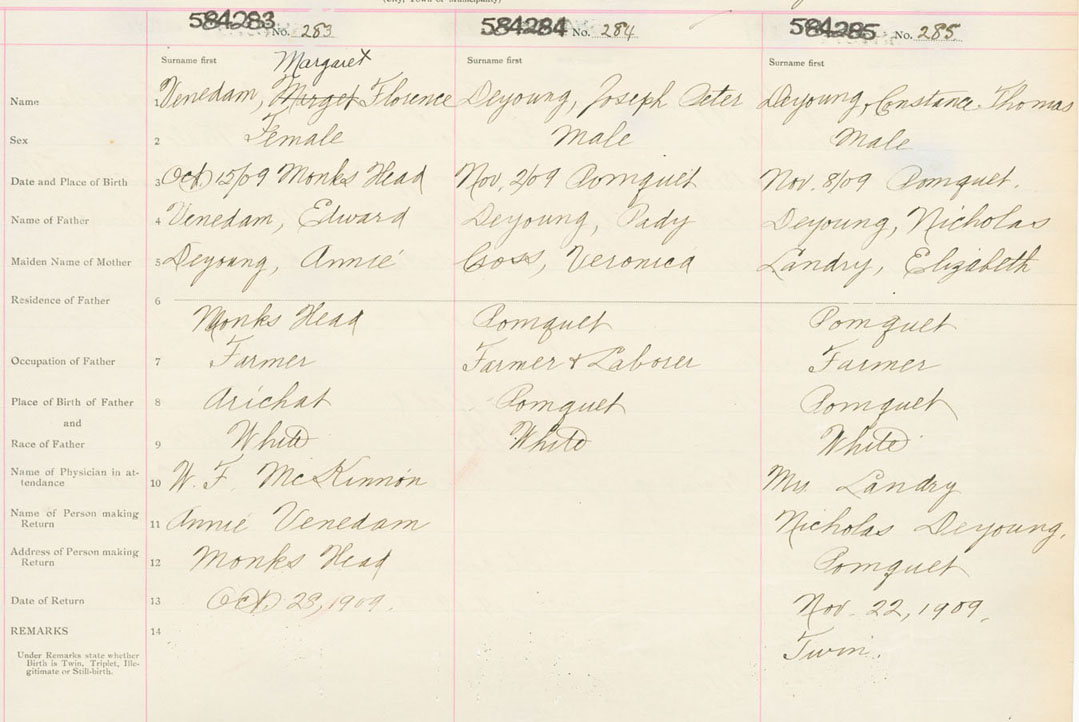 (City, Town or Municipality)
584283 No. 283
584284 No. 284
584285 No. 285
Surname first
Surname first
Surname first
Margaret
Name 1 Venedam, Mirget Florence
Deyoung, Joseph Peter
Deyoung, Constance Thomas
Sex 2 Female
Male
Male
Date and Place of Birth 3 Oct 15/09 Monks Head
Nov. 2/09 Pomquet
Nov. 8/09 Pomquet.
Name of Father 4 Venedam, Edward
Deyoung, Pady
Deyoung, Nicholas
Maiden Name of Mother 5 Deyoung, Annie
Goss, Veronica
Landry, Elizabeth
Residence of Father 6
Monks Head
Pomquet
Pomquet
Occupation of Father 7 Farmer
Farmer & Laborer
Farmer
Place of Birth of Father 8 Arichat
Pomquet
Pomquet
and
Race of Father 9 White
White
White
Name of Physician in at-
tendance 10 W. F. McKinnon
Mrs Landry
Name of Person making
Return 11 Annie Venedam
Nicholas Deyoung.
Address of Person making
Return 12 Monks Head
Pomquet
Date of Return 13 Oct 23, 1909.
Nov. 22, 1909.
REMARKS 14
Twin.
Under Remarks state whether
Birth is Twin, Triplet, Ille-
gitimate or Still-birth.